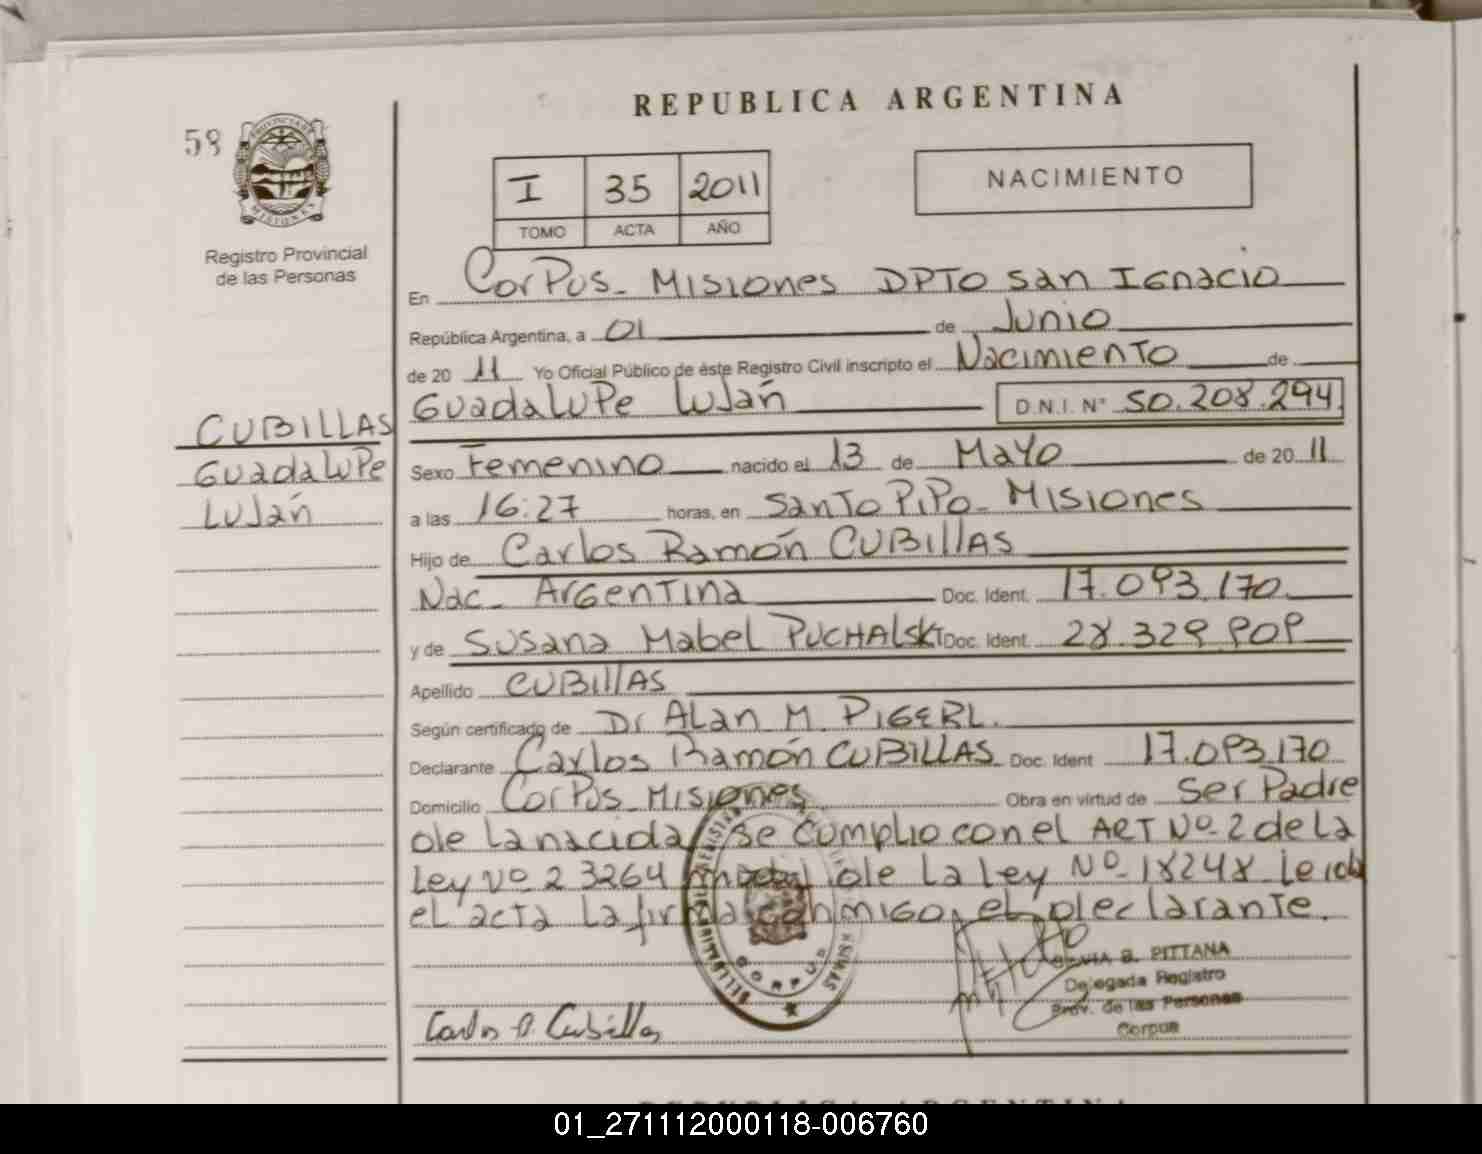 REPUBLICA ARGENTINA
58
PROVINCIA DE
MISIONES
Registro Provincial
de las Personas
I 35 2011
TOMO ACTA AÑO
NACIMIENTO
En Corpus - Misiones DPTO San Ignacio
República Argentina, a 01 de Junio
de 20 11 Yo Oficial Público de éste Registro Civil inscripto el Nacimiento de
Guadalupe Luján D.N.I. N° 50.208.294
CUBILLAS
Guadalupe
Luján
Sexo Femenino nacido el 13 de Mayo de 20 11
a las 16:27 horas, en Santo Pipo - Misiones
Hijo de Carlos Ramón CUBILLAS
Nac - Argentina Doc. Ident. 17.093.170
y de Susana Mabel PUCHALSKI Doc. Ident. 28.329.909
Apellido CUBILLAS
Según certificado de Dr Alan M. PIGERL.
Declarante Carlos Ramón CUBILLAS Doc. Ident 17.093.170
Domicilio Corpus - Misiones Obra en virtud de Ser Padre
de la nacida se cumplio con el ART Nº 2 de La
Ley Nº 23264 de La Ley Nº 18248 - Leida
el acta la firma conmigo, el declarante.
CORPUS
B. PITTANA
Delegada Registro
Prov. de las Personas
Corpus
Carlos R. Cubillas
01_271112000118-006760